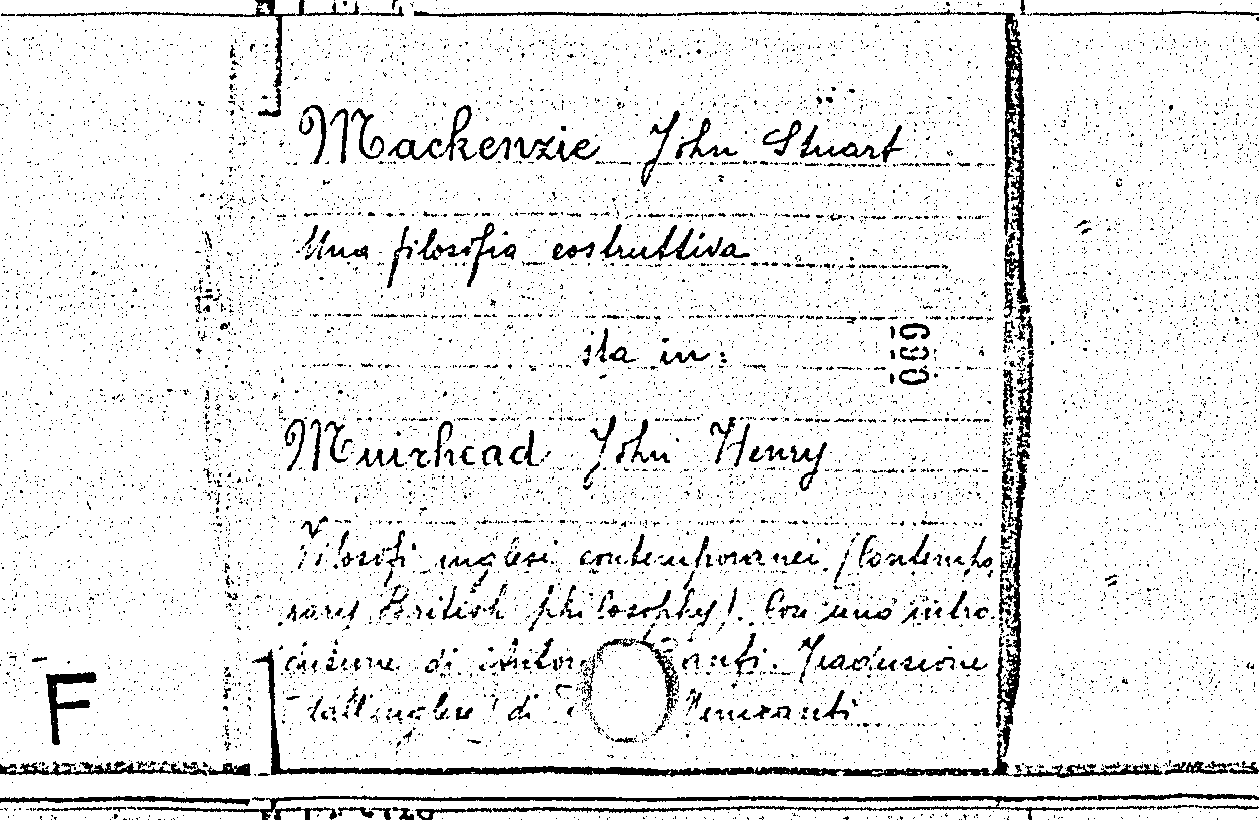 Mackenzie John Stuart
Una filosofia costruttiva
sta in:
089
Muirhead John Henry
Filosofi inglesi contemporanei (Contempo
rary British philosophy). Con una intro
duzione di Anton anfi. Traduzione
dall'inglese di
F